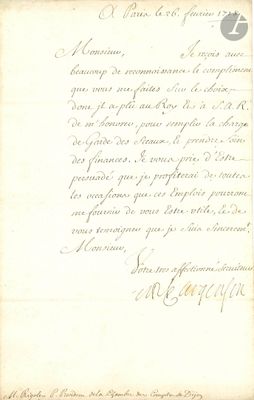 A Paris le 26. fevrier 1718.
Monsieur, Je reçois avec
beaucoup de reconnoissance le compliment
que vous me faites Sur le choix
dont jl a plû au Roy Et à S. A. R.
de m'honorer, pour remplir la charge
de Garde des Sceaux, le prendre soin
des finances. Je vous prie d'Estre
persuadé que je profiterai de toutes
les occasions que ces Emplois pourront
me fournir de vous Estre utile, Et de
vous temoigner que je Suis Sincerement
Monsieur,
Votre tres affectionné Serviteur
M. Rigoley P. President de la Chambre des Comptes de Dijon